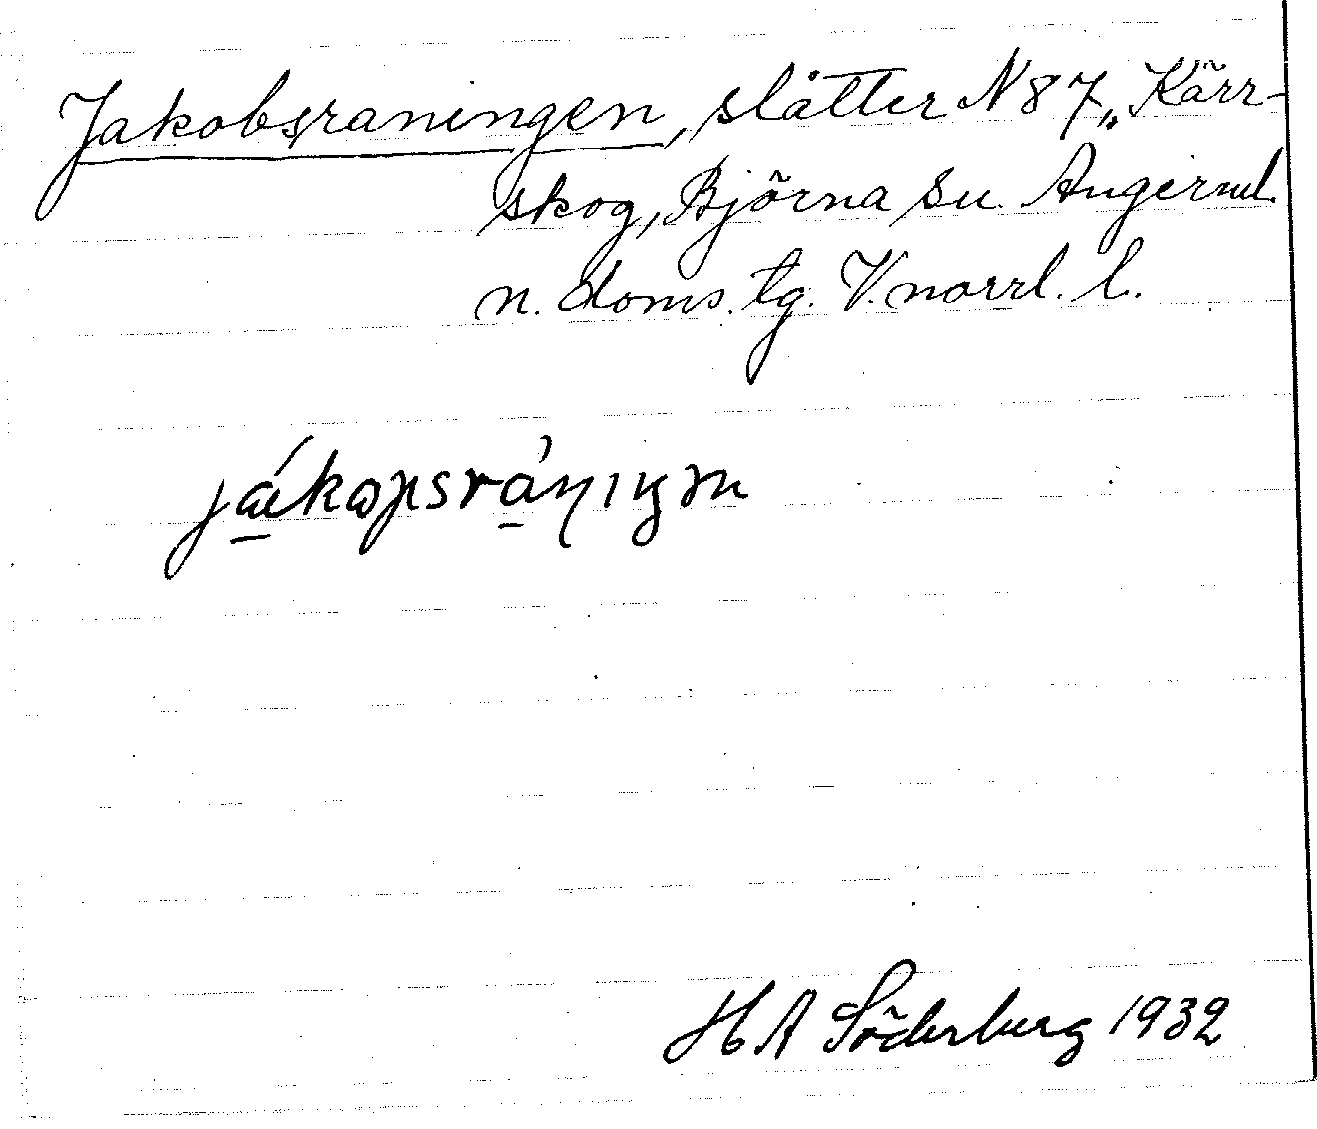 Jakobsraningen, slåtter N 87, Kärr-
skog, Björna sn. Ångerml.
n. doms. tg. V.norrl. l.
jákopsrániŋən
H A Söderberg 1932